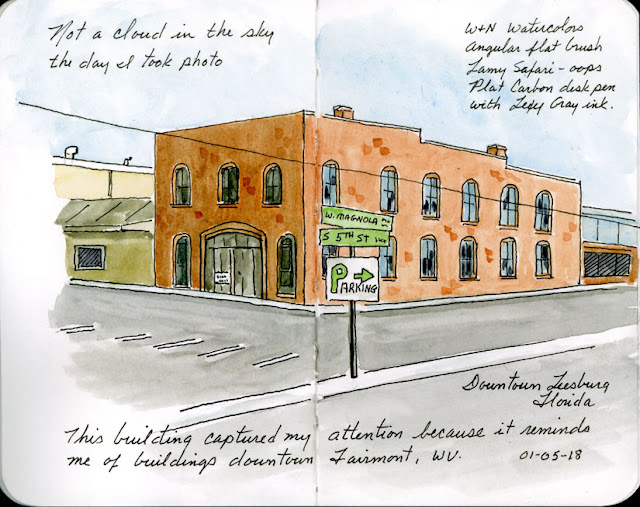 Not a cloud in the sky
the day I took photo
W+N Watercolors
angular flat brush
Lamy Safari - oops
Plat Carbon desk pen
with Lexy Gray ink.
W. MAGNOLA
S 5TH ST
PARKING
Downtown Leesburg
Florida
This building captured my attention because it reminds
me of buildings downtown Fairmont, WV.
01-05-18